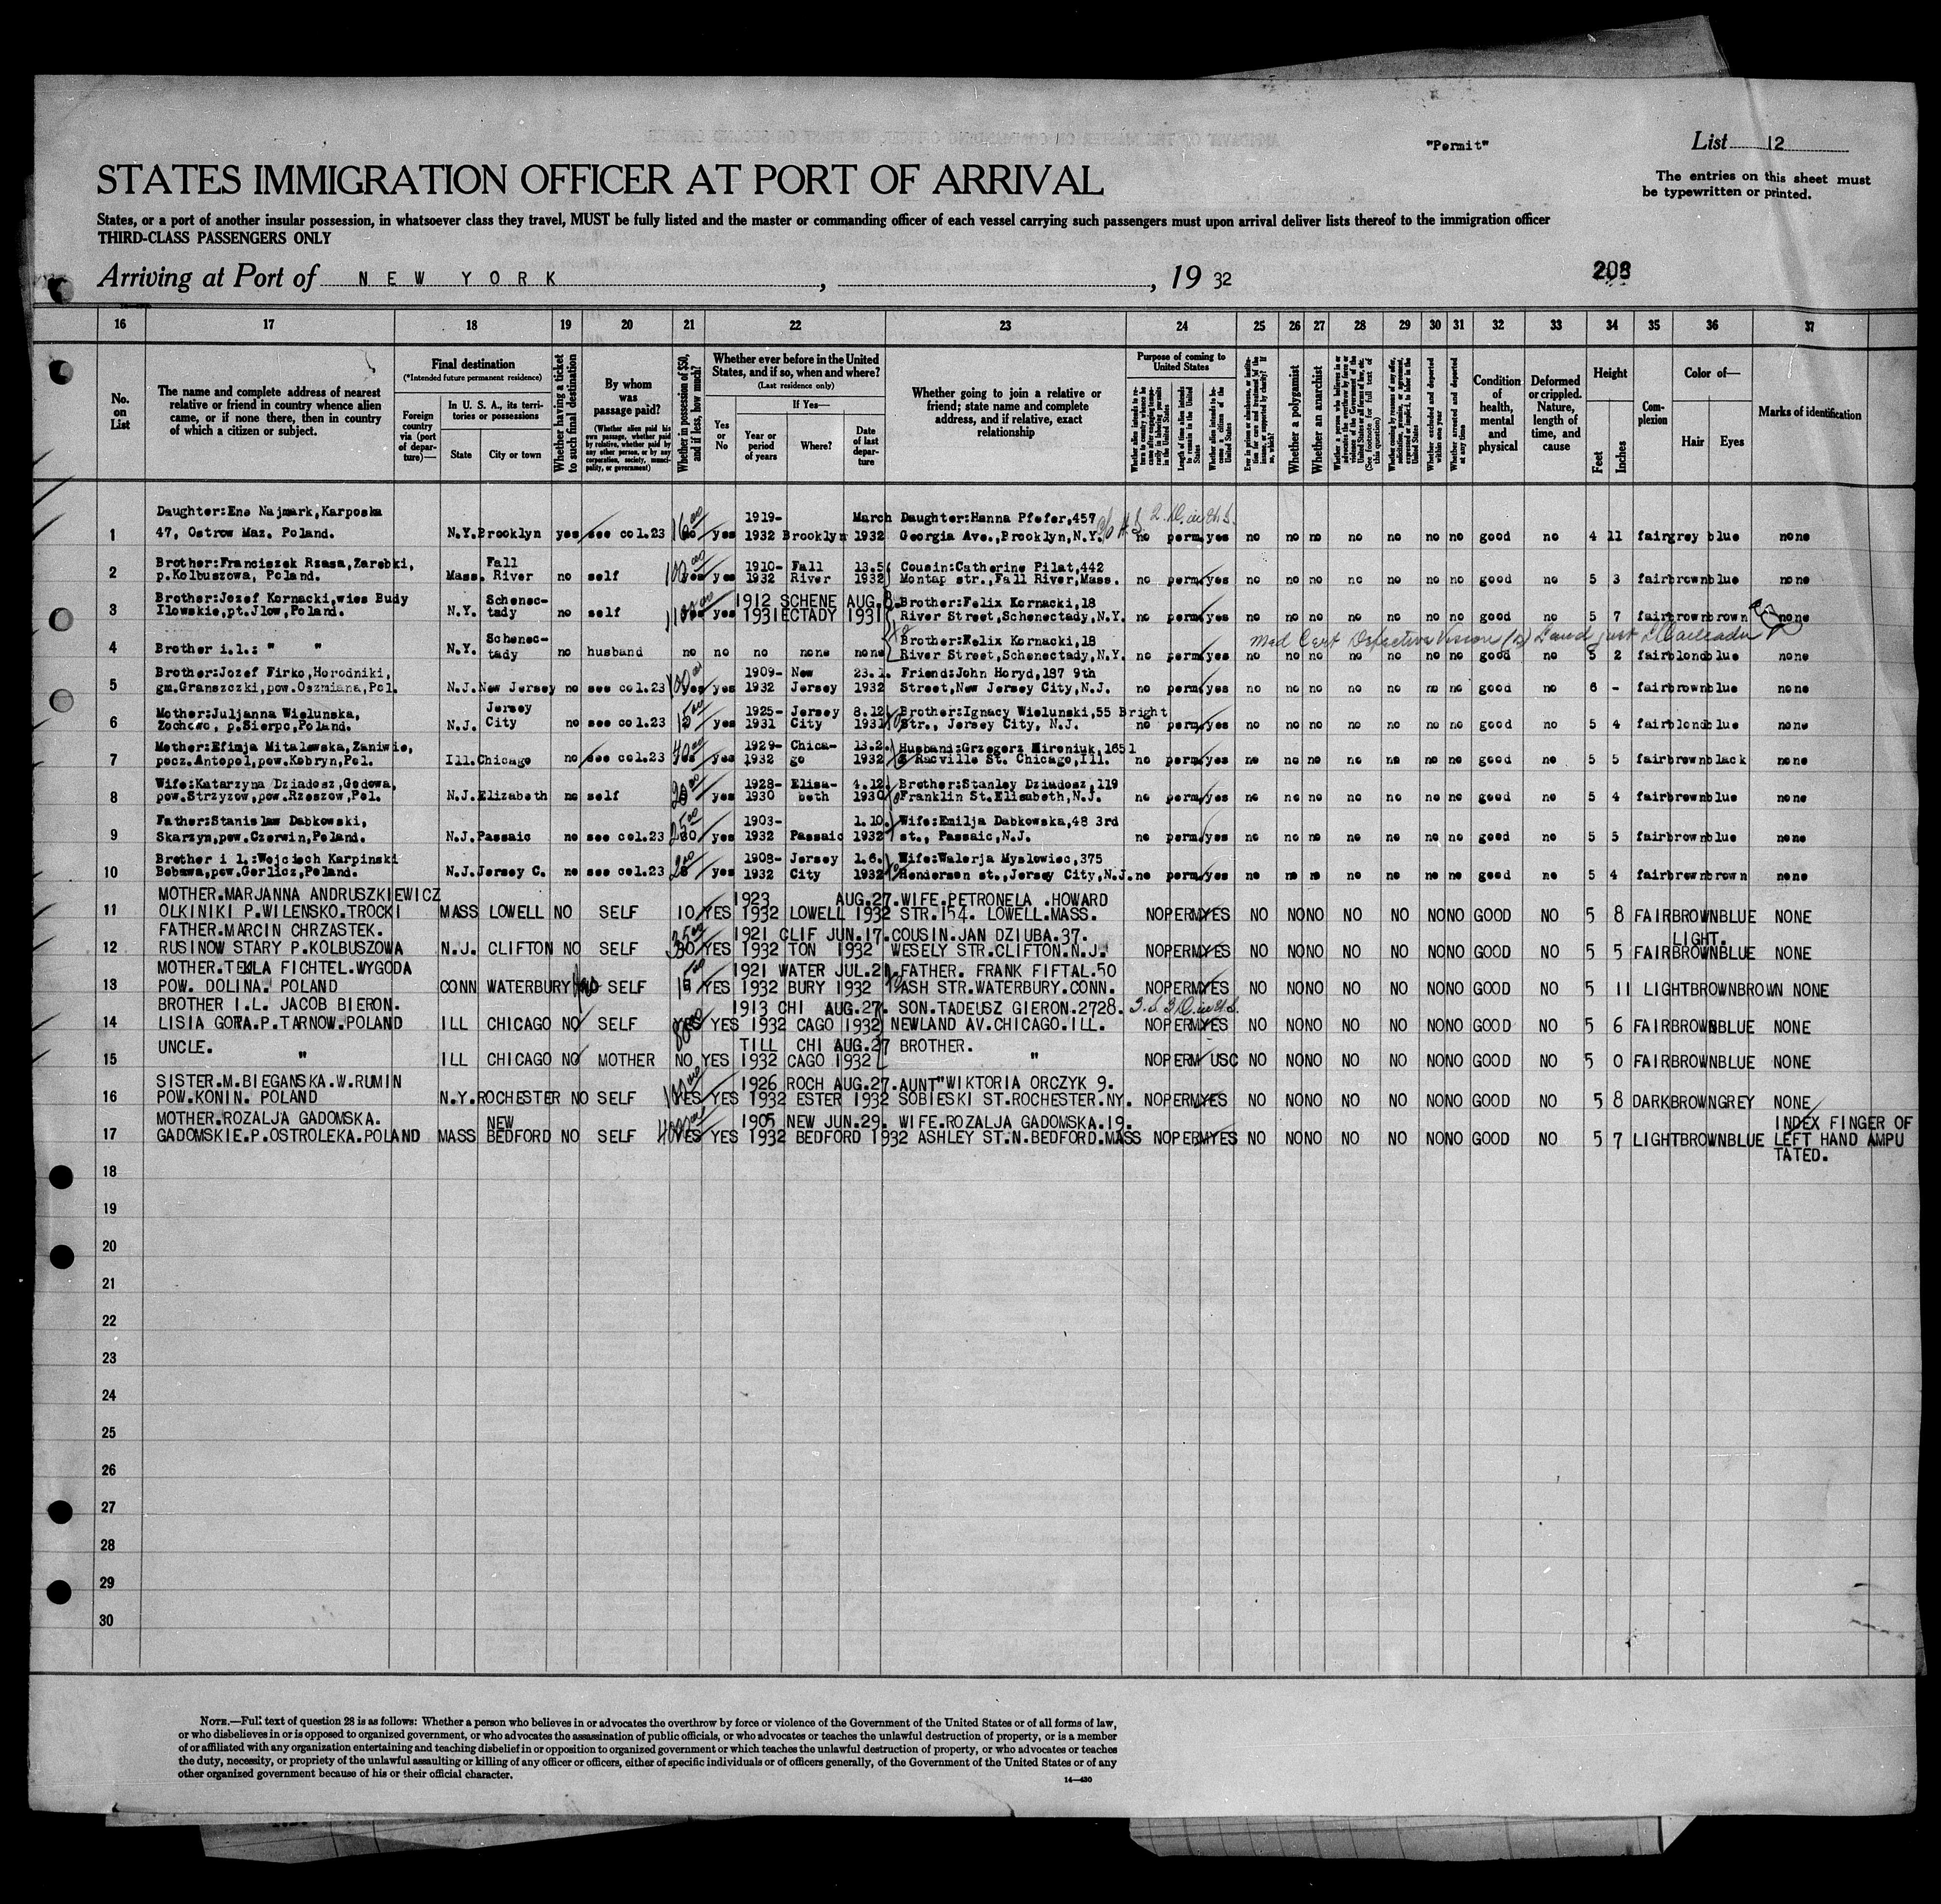 "Permit"
List 12
STATES IMMIGRATION OFFICER AT PORT OF ARRIVAL
The entries on this sheet must
be typewritten or printed.
States, or a port of another insular possession, in whatsoever class they travel, MUST be fully listed and the master or commanding officer of each vessel carrying such passengers must upon arrival deliver lists thereof to the immigration officer
THIRD-CLASS PASSENGERS ONLY
Arriving at Port of NEW YORK, , 19 32
208
16 17 18 19 20 21 22 23 24 25 26 27 28 29 30 31 32 33 34 35 36 37
No. on List
The name and complete address of nearest
relative or friend in country whence alien
came, or if none there, then in country
of which a citizen or subject.
Final destination
(*Intended future permanent residence)
Foreign country via (port of departure)—
In U. S. A., its territories or possessions
State
City or town
Whether having a ticket to such final destination
By whom was passage paid?
(Whether alien paid his own passage, whether paid by relative, whether paid by any other person, or by any corporation, society, municipality, or government)
Whether in possession of $50, and if less, how much?
Whether ever before in the United
States, and if so, when and where?
(Last residence only)
Yes or No
If Yes—
Year or period of years
Where?
Date of last departure
Whether going to join a relative or
friend; state name and complete
address, and if relative, exact
relationship
Purpose of coming to United States
Whether a polygamist
Whether an anarchist
Condition of health, mental and physical
Deformed or crippled. Nature, length of time, and cause
Height
Feet
Inches
Complexion
Color of—
Hair
Eyes
Marks of identification
Daughter:Ene Najmark,Karposka 1919- March Daughter:Hanna Pfefer,457
1 47, Ostrow Maz. Poland. N.Y. Brooklyn yes see col.23 yes 1932 Brooklyn 1932 Georgia Ave.,Brooklyn,N.Y. no perm. yes no no no no no no no good no 4 11 fair grey blue none
Brother:Franciszek Rzasa,Zarebki, Fall 1910- Fall 13.5 Cousin:Catherine Pilat,442
2 p.Kolbuszowa, Poland. Mass. River no self yes yes 1932 River 1932 Montap str.,Fall River,Mass. no perm yes no no no no no no no good no 5 3 fair brown blue none
Brother:Jozef Kornacki,wies Budy Schenec- 1912 SCHENE AUG. Brother:Felix Kornacki,18
3 Ilowskie,pt.Jlow,Poland. N.Y. tady no self yes yes 1931 ECTADY 1931 River Street,Schenectady,N.Y. no perm yes no no no no no no no good no 5 7 fair brown brown none
Schenec- Brother:Felix Kornacki,18 Med Cert Defective Vision
4 Brother i.l.: " " N.Y. tady no husband no no no none none River Street,Schenectady,N.Y. no perm yes no no no no no no no good no 5 2 fair blond blue none
Brother:Jozef Firko,Horodniki, 1909- New 23.1. Friend:John Horyd,187 9th
5 gm.Granszczki,pow.Oszmiana,Pol. N.J. New Jersey no see col.23 yes yes 1932 Jersey 1932 Street,New Jersey City,N.J. no perm yes no no no no no no no good no 6 - fair brown blue none
Mother:Juljanna Wielunska, Jersey 1925- Jersey 8.12 Brother:Ignacy Wielunski,55 Bright
6 Zochowo, p.Sierpc,Poland. N.J. City no see col.23 15 yes 1931 City 1931 Str., Jersey City, N.J. no perm yes no no no no no no no good no 5 4 fair blond blue none
Mother:Efimja Mitalewska,Zaniwie, 1929- Chica- 13.2. Husband:Grzegorz Mironiuk,1651
7 pocz.Antopol,pow.Kobryn,Pol. Ill. Chicago no see col.23 yes 1932 go 1932 S Racville St. Chicago,Ill. no perm yes no no no no no no no good no 5 5 fair brown black none
Wife:Katarzyna Dziadosz,Godowa, 1928- Elisa- 4.12 Brother:Stanley Dziadosz,119
8 pow.Strzyzow,pow.Rzeszow,Pol. N.J. Elizabeth no self yes 1930 beth 1930 Franklin St.Elisabeth,N.J. no perm yes no no no no no no no good no 5 4 fair brown blue none
Father:Stanislaw Dabkowski, 1903- 1.10. Wife:Emilja Dabkowska,48 3rd
9 Skarzyn,pow.Czerwin,Poland. N.J. Passaic no see col.23 yes 1932 Passaic 1932 st., Passaic,N.J. no perm yes no no no no no no no good no 5 5 fair brown blue none
Brother i l.:Wojciech Karpinski 1908- Jersey 1.6. Wife:Walerja Myslowiec,375
10 Bobawa,pow.Gorlicz,Poland. N.J. Jersey C. no see col.23 yes 1932 City 1932 Henderson st.,Jersey City,N.J. no perm yes no no no no no no no good no 5 4 fair brown brown none
MOTHER.MARJANNA ANDRUSZKIEWICZ 1923 AUG.27. WIFE.PETRONELA .HOWARD
11 OLKINIKI P.WILENSKO.TROCKI MASS LOWELL NO SELF 10 YES 1932 LOWELL 1932 STR.154. LOWELL.MASS. NO PERM YES NO NO NO NO NO NO NO GOOD NO 5 8 FAIR BROWN BLUE NONE
FATHER.MARCIN CHRZASTEK. 1921 CLIF JUN.17. COUSIN.JAN DZIUBA.37. LIGHT.
12 RUSINOW STARY P.KOLBUSZOWA N.J. CLIFTON NO SELF 30 YES 1932 TON 1932 WESELY STR.CLIFTON.N.J. NO PERM YES NO NO NO NO NO NO NO GOOD NO 5 5 FAIR BROWN BLUE NONE
MOTHER.TEKLA FICHTEL.WYGODA 1921 WATER JUL.2 FATHER. FRANK FIFTAL.50
13 POW. DOLINA. POLAND CONN WATERBURY SELF 15 YES 1932 BURY 1932 ASH STR.WATERBURY.CONN. NO PERM YES NO NO NO NO NO NO NO GOOD NO 5 11 LIGHT BROWN BROWN NONE
BROTHER I.L. JACOB BIERON. 1913 CHI AUG.27. SON.TADEUSZ GIERON.2728.
14 LISIA GORA.P.TARNOW.POLAND ILL CHICAGO NO SELF YES YES 1932 CAGO 1932 NEWLAND AV.CHICAGO.ILL. NO PERM YES NO NO NO NO NO NO NO GOOD NO 5 6 FAIR BROWN BLUE NONE
UNCLE. TILL CHI AUG.27 BROTHER.
15 " ILL CHICAGO NO MOTHER NO YES 1932 CAGO 1932 " NO PERM USC NO NO NO NO NO NO NO GOOD NO 5 0 FAIR BROWN BLUE NONE
SISTER.M.BIEGANSKA.W.RUMIN 1926 ROCH AUG.27. AUNT"WIKTORIA ORCZYK 9.
16 POW.KONIN. POLAND N.Y. ROCHESTER NO SELF YES YES 1932 ESTER 1932 SOBIESKI ST.ROCHESTER.NY. NO PERM YES NO NO NO NO NO NO NO GOOD NO 5 8 DARK BROWN GREY NONE
MOTHER.ROZALJA GADOMSKA. NEW 1905 NEW JUN.29. WIFE.ROZALJA GADOMSKA.19. INDEX FINGER OF
17 GADOMSKIE.P.OSTROLEKA.POLAND MASS BEDFORD NO SELF YES YES 1932 BEDFORD 1932 ASHLEY ST.N.BEDFORD.MASS NO PERM YES NO NO NO NO NO NO NO GOOD NO 5 7 LIGHT BROWN BLUE LEFT HAND AMPU
TATED.
18
19
20
21
22
23
24
25
26
27
28
29
30
NOTE.—Full text of question 28 is as follows: Whether a person who believes in or advocates the overthrow by force or violence of the Government of the United States or of all forms of law,
or who disbelieves in or is opposed to organized government, or who advocates the assassination of public officials, or who advocates or teaches the unlawful destruction of property, or is a member
of or affiliated with any organization entertaining and teaching disbelief in or opposition to organized government or which teaches the unlawful destruction of property, or who advocates or teaches
the duty, necessity, or propriety of the unlawful assaulting or killing of any officer or officers, either of specific individuals or of officers generally, of the Government of the United States or of any
other organized government because of his or their official character.
14—430